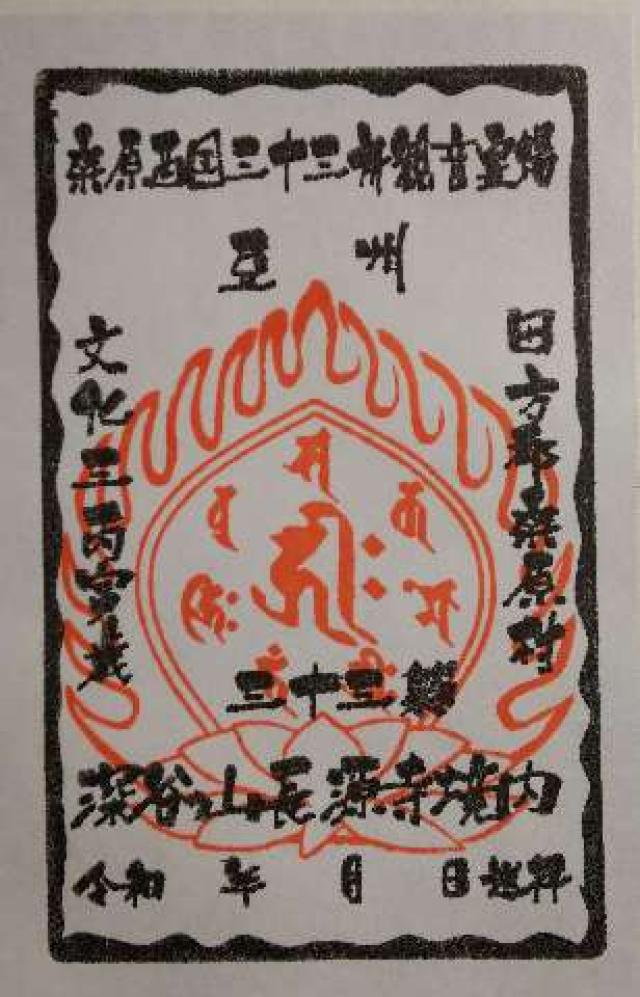 桑原西国三十三所観音霊場
豆州
田方郡桑原村
文化三丙寅歳
三十三躰
深谷山長源寺境内
令和 年 月 日